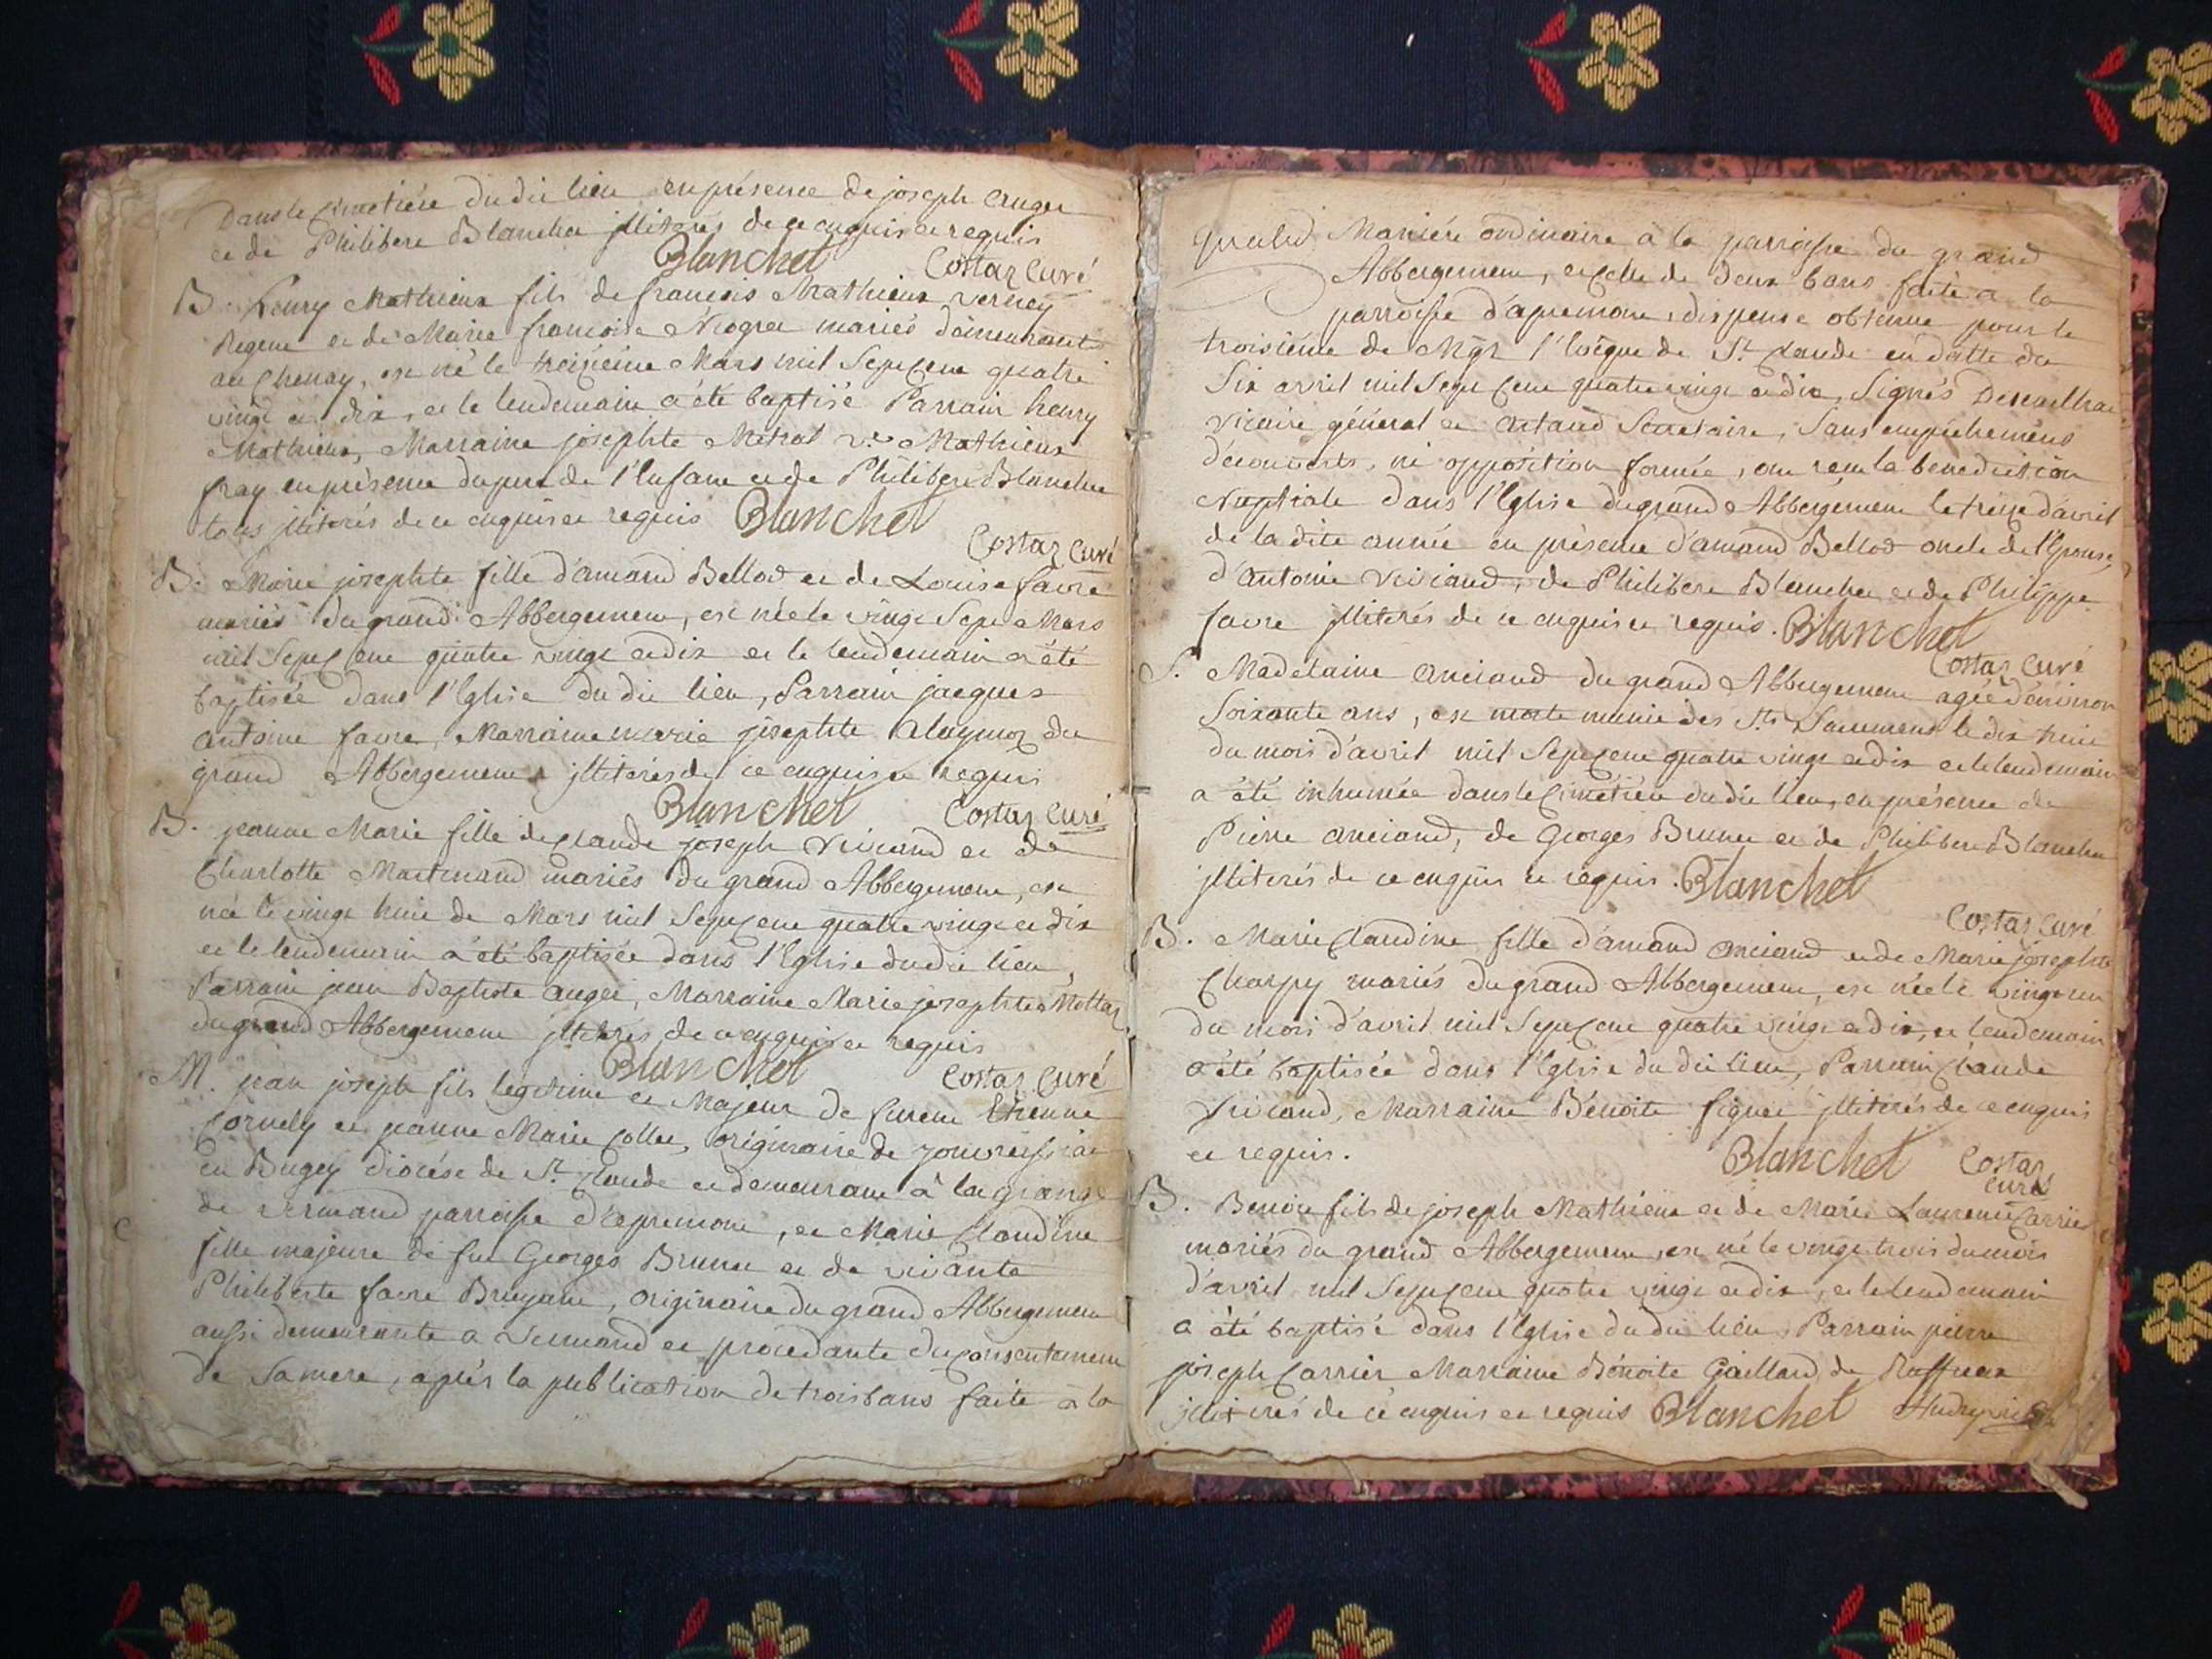 Dans le Cimetiére du dit lieu en présence de joseph auger
et de Philibert Blanchet illiterés de ce enquis et requis
Blanchet Costaz Curé
B. henry Mathieux fils de francois Mathieux verney
Regent et de Marie francoise demeurants
au Chenay, est né le treiziéme Mars mil Sept Cent quatre
vingt et dix, et le lendemain a été baptisé Parrain henry
Mathieux, Marraine josephte Metral v.e Mathieux
fray en présence du pere de l'Enfant et de Philibert Blanchet
tous illiterés de ce enquis et requis Blanchet
Costaz Curé
B. Marie josephte fille d'amand Bellod et de Louise favre
mariés du grand Abbergement, est née le vingt Sept Mars
mil Sept Cent quatre vingt et dix et le lendemain a été
baptisée dans l'Eglise du dit lieu, Parrain jacques
antoine favre, Marraine marie josephte du
grand Abbergement illiterés de ce enquis et requis
Blanchet Costaz Curé
B. jeanne Marie fille de Claude joseph Viviand et de
Charlotte Martinand mariés du grand Abbergement, est
née le vingt huit de Mars mil Sept Cent quatre vingt et dix
et le lendemain a été baptisée dans l'Eglise du dit lieu,
Parrain jean Baptiste auger, Marraine Marie josephte Mottaz
du grand Abbergement illiterés de ce enquis et requis
Blanchet Costaz Curé
M. jean joseph fils legitime et Majeur de furent Etienne
Cornely et jeanne Marie Collet, originaire de
en Bugey diocése de St. Claude et demeurant à la grange
de vermand parroisse d'apremont, et Marie Claudine
fille majeure de feu Georges Brunet et de vivante
Philiberte favre Bruyant, originaire du grand Abbergement
aussi demeurante a vermand et procedante du Consentement
de Sa mere, aprés la publication de trois bans faite a la
Manière ordinaire a la parroisse du grand
Abbergement, et celle de deux bans faite a la
parroisse d'apremont, dispense obtenue pour le
troisiéme de Mgr l'Evêque de St. Claude en datte du
Six avril mil Sept Cent quatre vingt et dix, Signés
vicaire général et artaud Secretaire, Sans empêchemens
découverts, ni opposition formée, ont recu la benediction
Nuptiale dans l'Eglise du grand Abbergement le treize d'avril
de la dite année en présence d'amand Bellod oncle de l'Epouse,
d'antoine Viviand, de Philibert Blanchet et de Philippe
favre illiterés de ce enquis et requis. Blanchet
Costaz Curé
S. Madelaine anciand du grand Abbergement agée d'environ
Soixante ans, est morte munie des Sts. Sacremens le dix huit
du mois d'avril mil Sept Cent quatre vingt et dix et le lendemain
a été inhumée dans le Cimétiére du dit lieu, en présence de
Pierre anciand, de Georges Brunet et de Philibert Blanchet
illiterés de ce enquis et requis. Blanchet
Costaz Curé
B. Marie Claudine fille d'amand anciand et de Marie josephte
Charpy mariés du grand Abbergement, est née le vingt un
du mois d'avril mil Sept Cent quatre vingt et dix, et lendemain
a été baptisée dans l'Eglise du dit lieu, Parrain Claude
Viviand, Marraine Bénoite illiterés de ce enquis
et requis. Blanchet Costaz
Curé
B. Benoit fils de joseph Mathieux et de Marie Laurence Carrier
mariés du grand Abbergement, est né le vingt trois du mois
d'avril mil Sept Cent quatre vingt et dix, et le lendemain
a été baptisé dans l'Eglise du dit lieu, Parrain pierre
joseph Carrier Marraine Bénoite Gaillard, de Ruffieux
illiterés de ce enquis et requis Blanchet